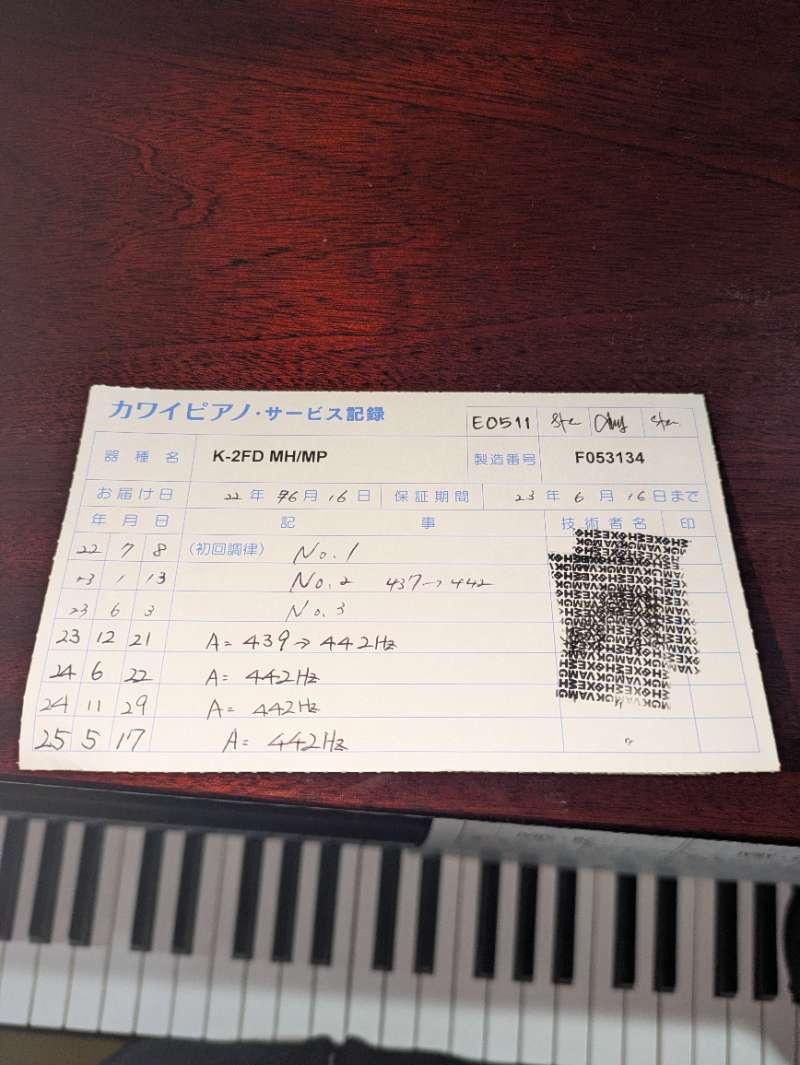 カワイピアノ・サービス記録 E0511
器種名 K-2FD MH/MP 製造番号 F053134
お届け日 22年 6月 16日 保証期間 23年 6月 16日まで
年 月 日 記事 技術者名 印
22 7 8 (初回調律) No.1
23 1 13 No.2 437→442
23 6 3 No.3
23 12 21 A= 439→442Hz
24 6 22 A= 442Hz
24 11 29 A= 442Hz
25 5 17 A= 442Hz